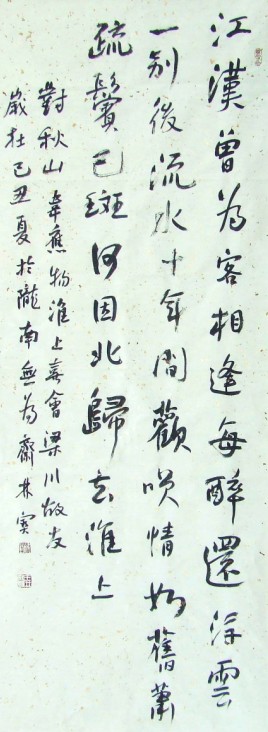 江漢曾為客相逢每醉還浮雲
一別後流水十年間歡咲情如舊蕭
疏鬢已斑何因北歸去淮上
對秋山韋應物淮上喜會梁川故友
歲在己丑夏於隴南無為齋林實